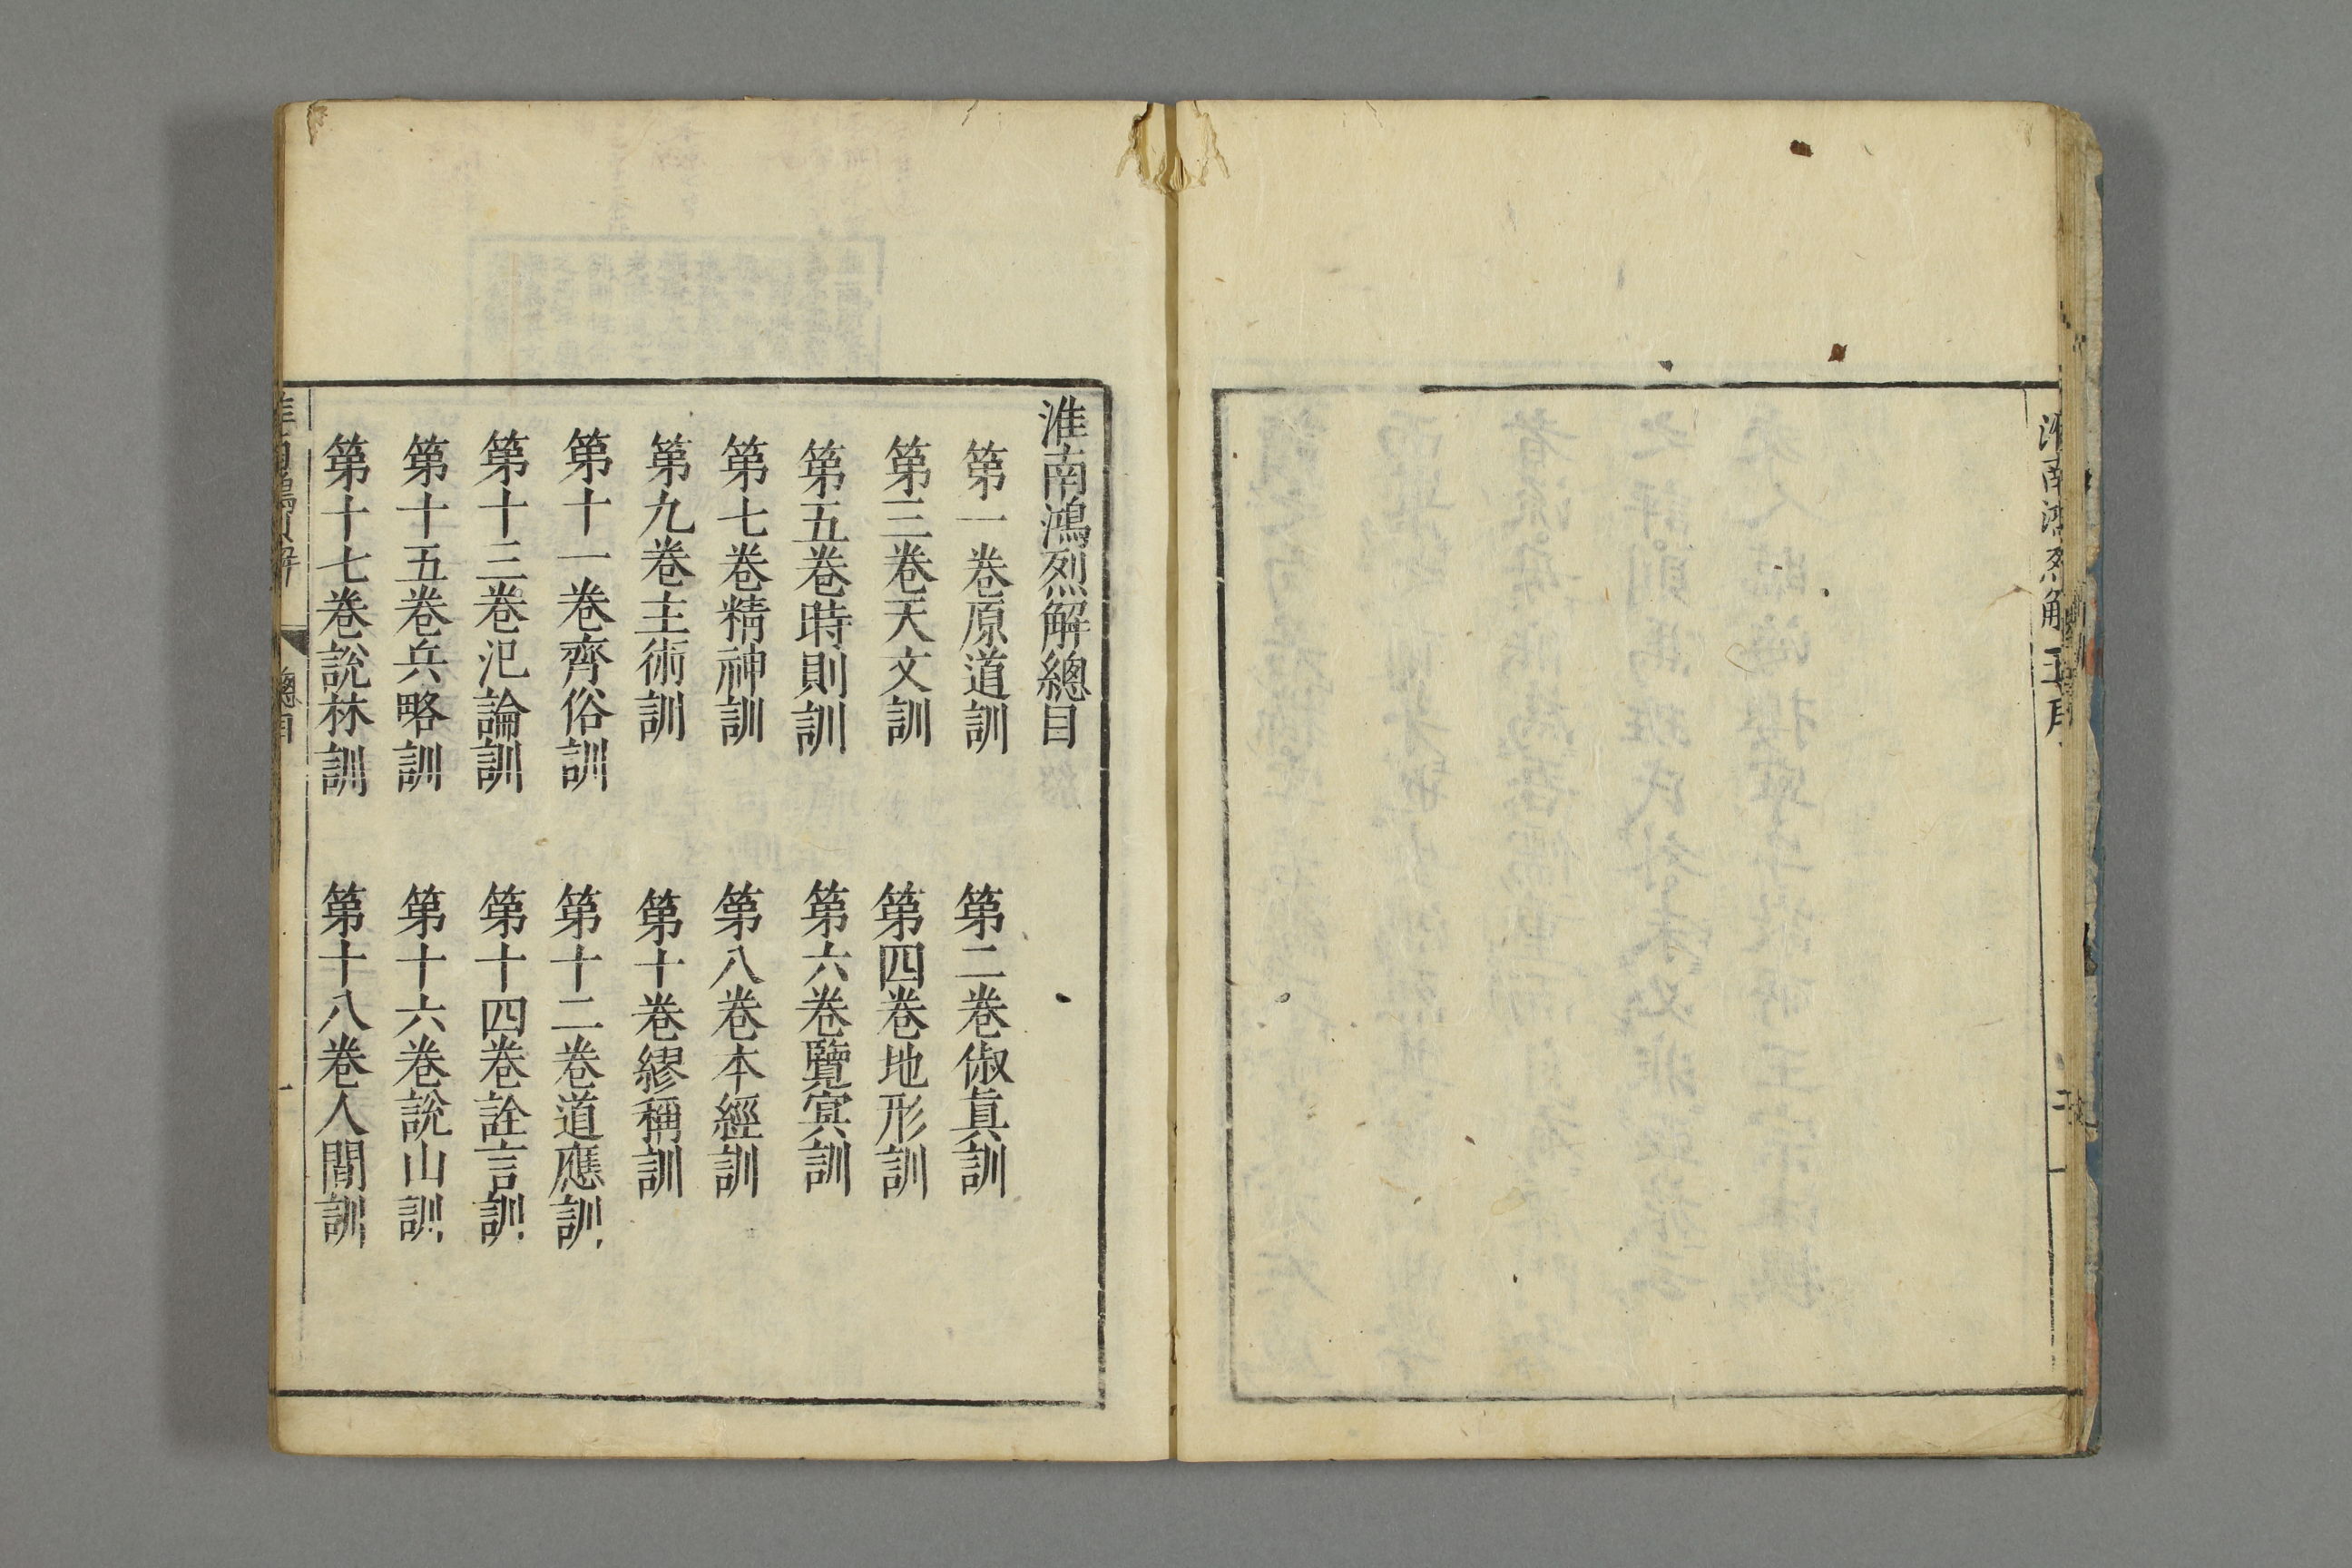 淮南鴻烈解
淮南鴻烈解總目
第一卷原道訓
第二卷俶眞訓
第三卷天文訓
第四卷地形訓
第五卷時則訓
第六卷覽冥訓
第七卷精神訓
第八卷本經訓
第九卷主術訓
第十卷繆稱訓
第十一卷齊俗訓
第十二卷道應訓
第十三卷氾論訓
第十四卷詮言訓
第十五卷兵略訓
第十六卷說山訓
第十七卷說林訓
第十八卷人間訓
總目
一